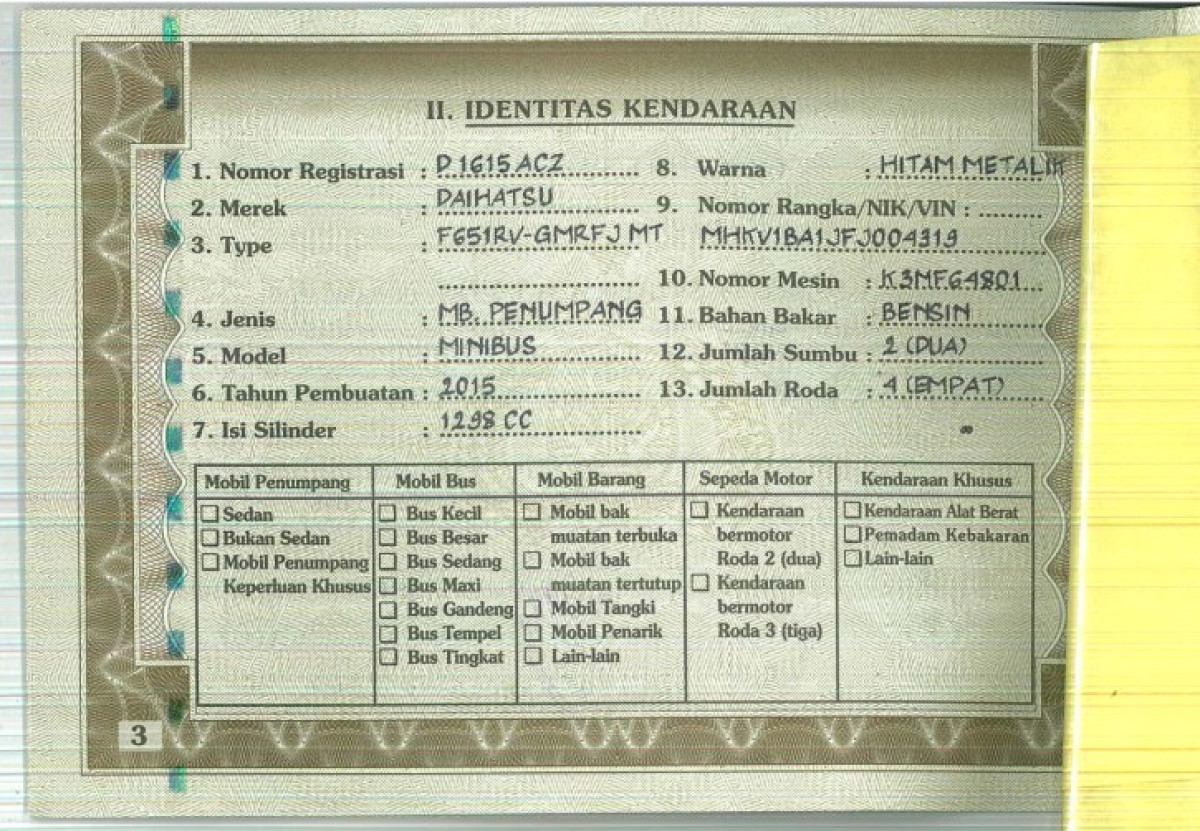 II. IDENTITAS KENDARAAN
1. Nomor Registrasi : D 1615 ACZ
2. Merek : DAIHATSU
3. Type : F651RV-GMRFJ MT
4. Jenis : MB. PENUMPANG
5. Model : MINIBUS
6. Tahun Pembuatan : 2015
7. Isi Silinder : 1298 CC
8. Warna : HITAM METALIK
9. Nomor Rangka/NIK/VIN :
MHKV1BA1JFJ004319
10. Nomor Mesin : K3MF64801
11. Bahan Bakar : BENSIN
12. Jumlah Sumbu : 2 (DUA)
13. Jumlah Roda : 4 (EMPAT)
Mobil Penumpang
Sedan
Bukan Sedan
Mobil Penumpang
Keperluan Khusus
Mobil Bus
Bus Kecil
Bus Besar
Bus Sedang
Bus Maxi
Bus Gandeng
Bus Tempel
Bus Tingkat
Mobil Barang
Mobil bak
muatan terbuka
Mobil bak
muatan tertutup
Mobil Tangki
Mobil Penarik
Lain-lain
Sepeda Motor
Kendaraan
bermotor
Roda 2 (dua)
Kendaraan
bermotor
Roda 3 (tiga)
Kendaraan Khusus
Kendaraan Alat Berat
Pemadam Kebakaran
Lain-lain
3